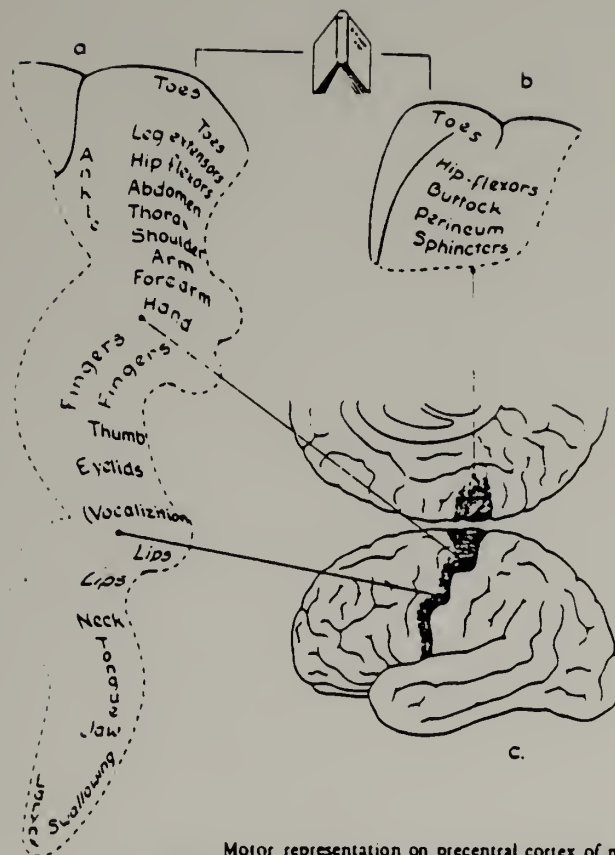 a
Toes
Toes
Leg extensors
Hip flexors
Abdomen
Thorax
Shoulder
Arm
Forearm
Hand
Ankle
Fingers
Fingers
Thumb
Eyelids
(Vocaliznion
Lips
Lips
Neck
Tongue
Jaw
Swallowing
Larynx
b
Toes
Hip-flexors
Buttock
Perineum
Sphincters
c.
Motor representation on precentral cortex of